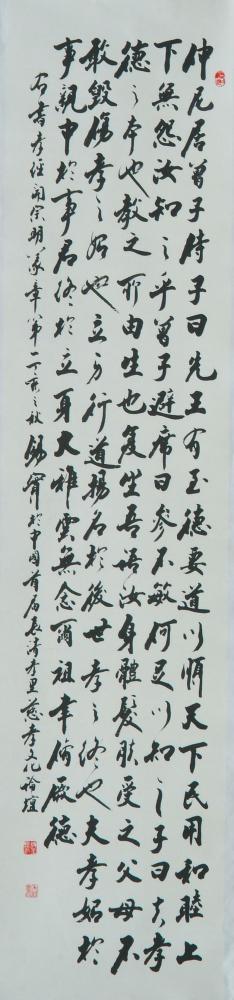 仲尼居曾子侍子曰先王有至德要道以順天下民用和睦上
下無怨汝知之乎曾子避席曰參不敏何足以知之子曰夫孝
德之本也教之所由生也復坐吾語汝身體髮膚受之父母不
敢毀傷孝之始也立身行道揚名於後世孝之終也夫孝始於
事親中於事君終於立身大雅雲無念爾祖聿修厥德
右書孝經開宗明義章第一丁亥之秋於中國首屆長清孝里慈孝文化論壇